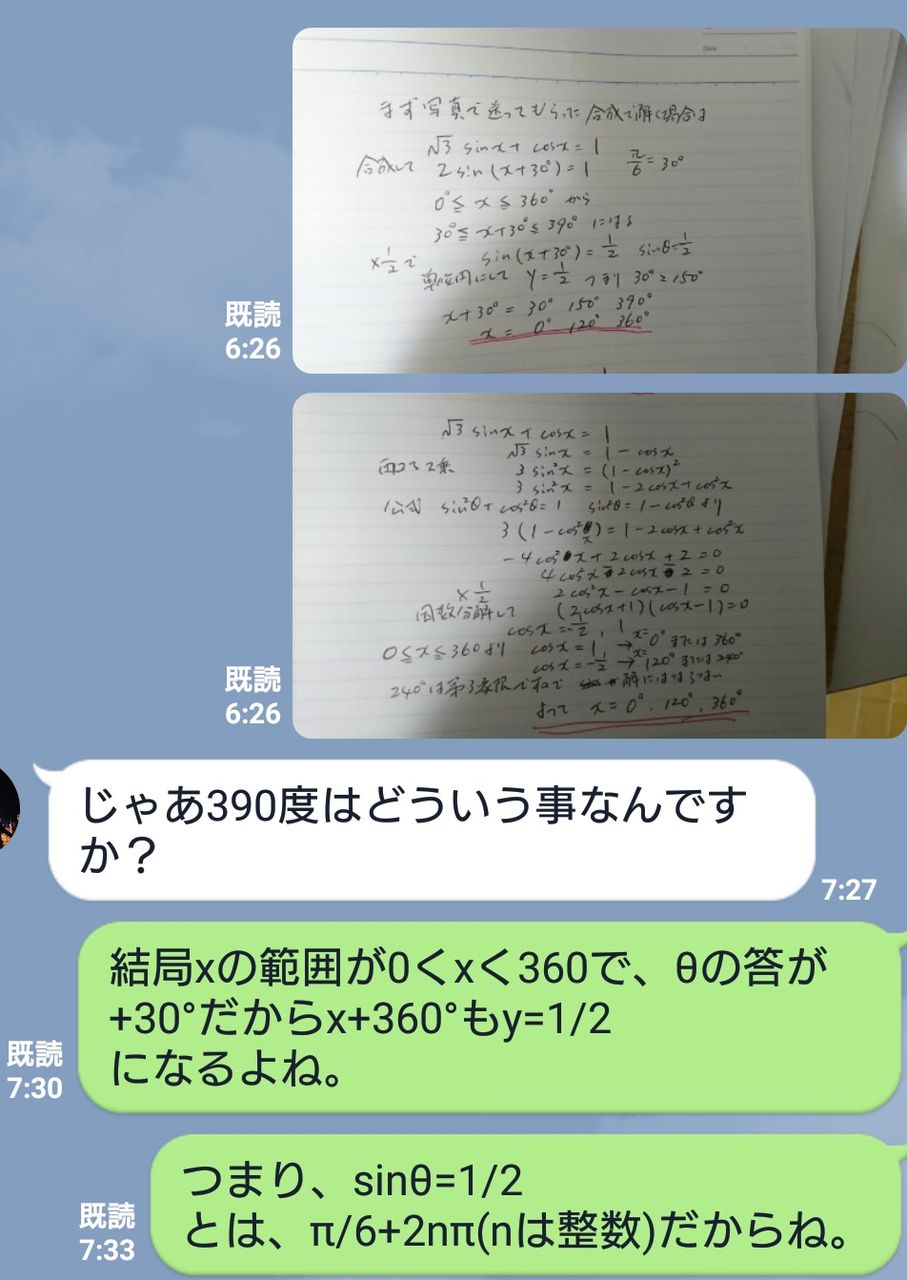 Date
まず写真で送ってもらった合成で解く場合は
√3 sinx + cosx = 1
合成して 2 sin (x+30°) = 1 π/6 = 30°
0°≦ x ≦ 360° から
30°≦ x+30°≦ 390° になる
×1/2で sin (x+30°) = 1/2 sinθ=1/2
単位円にして y = 1/2 つまり 30°と150°
x+30° = 30° 150° 390°
x = 0° 120° 360°
既読
6:26
√3 sinx + cosx = 1
√3 sinx = 1 - cosx
両辺を2乗 3 sin²x = (1 - cosx)²
3 sin²x = 1 - 2cosx + cos²x
公式 sin²θ + cos²θ = 1 sin²θ = 1 - cos²θ より
3 (1 - cos²x) = 1 - 2cosx + cos²x
-4cos²x + 2cosx + 2 = 0
4cos²x - 2cosx - 2 = 0
×1/2 2cos²x - cosx - 1 = 0
因数分解して (2cosx+1)(cosx-1)=0
cosx = -1/2 , 1
0≦x≦360より cosx = 1 → x= 0° または 360°
cosx = -1/2 → x= 120° または 240°
240°は第3象限ですので 解にはならない
よって x = 0°, 120°, 360°
既読
6:26
じゃあ390度はどういう事なんです
か？
7:27
結局xの範囲が0くxく360で、θの答が
+30°だからx+360°もy=1/2
になるよね。
既読
7:30
つまり、sinθ=1/2
とは、π/6+2nπ(nは整数)だからね。
既読
7:33